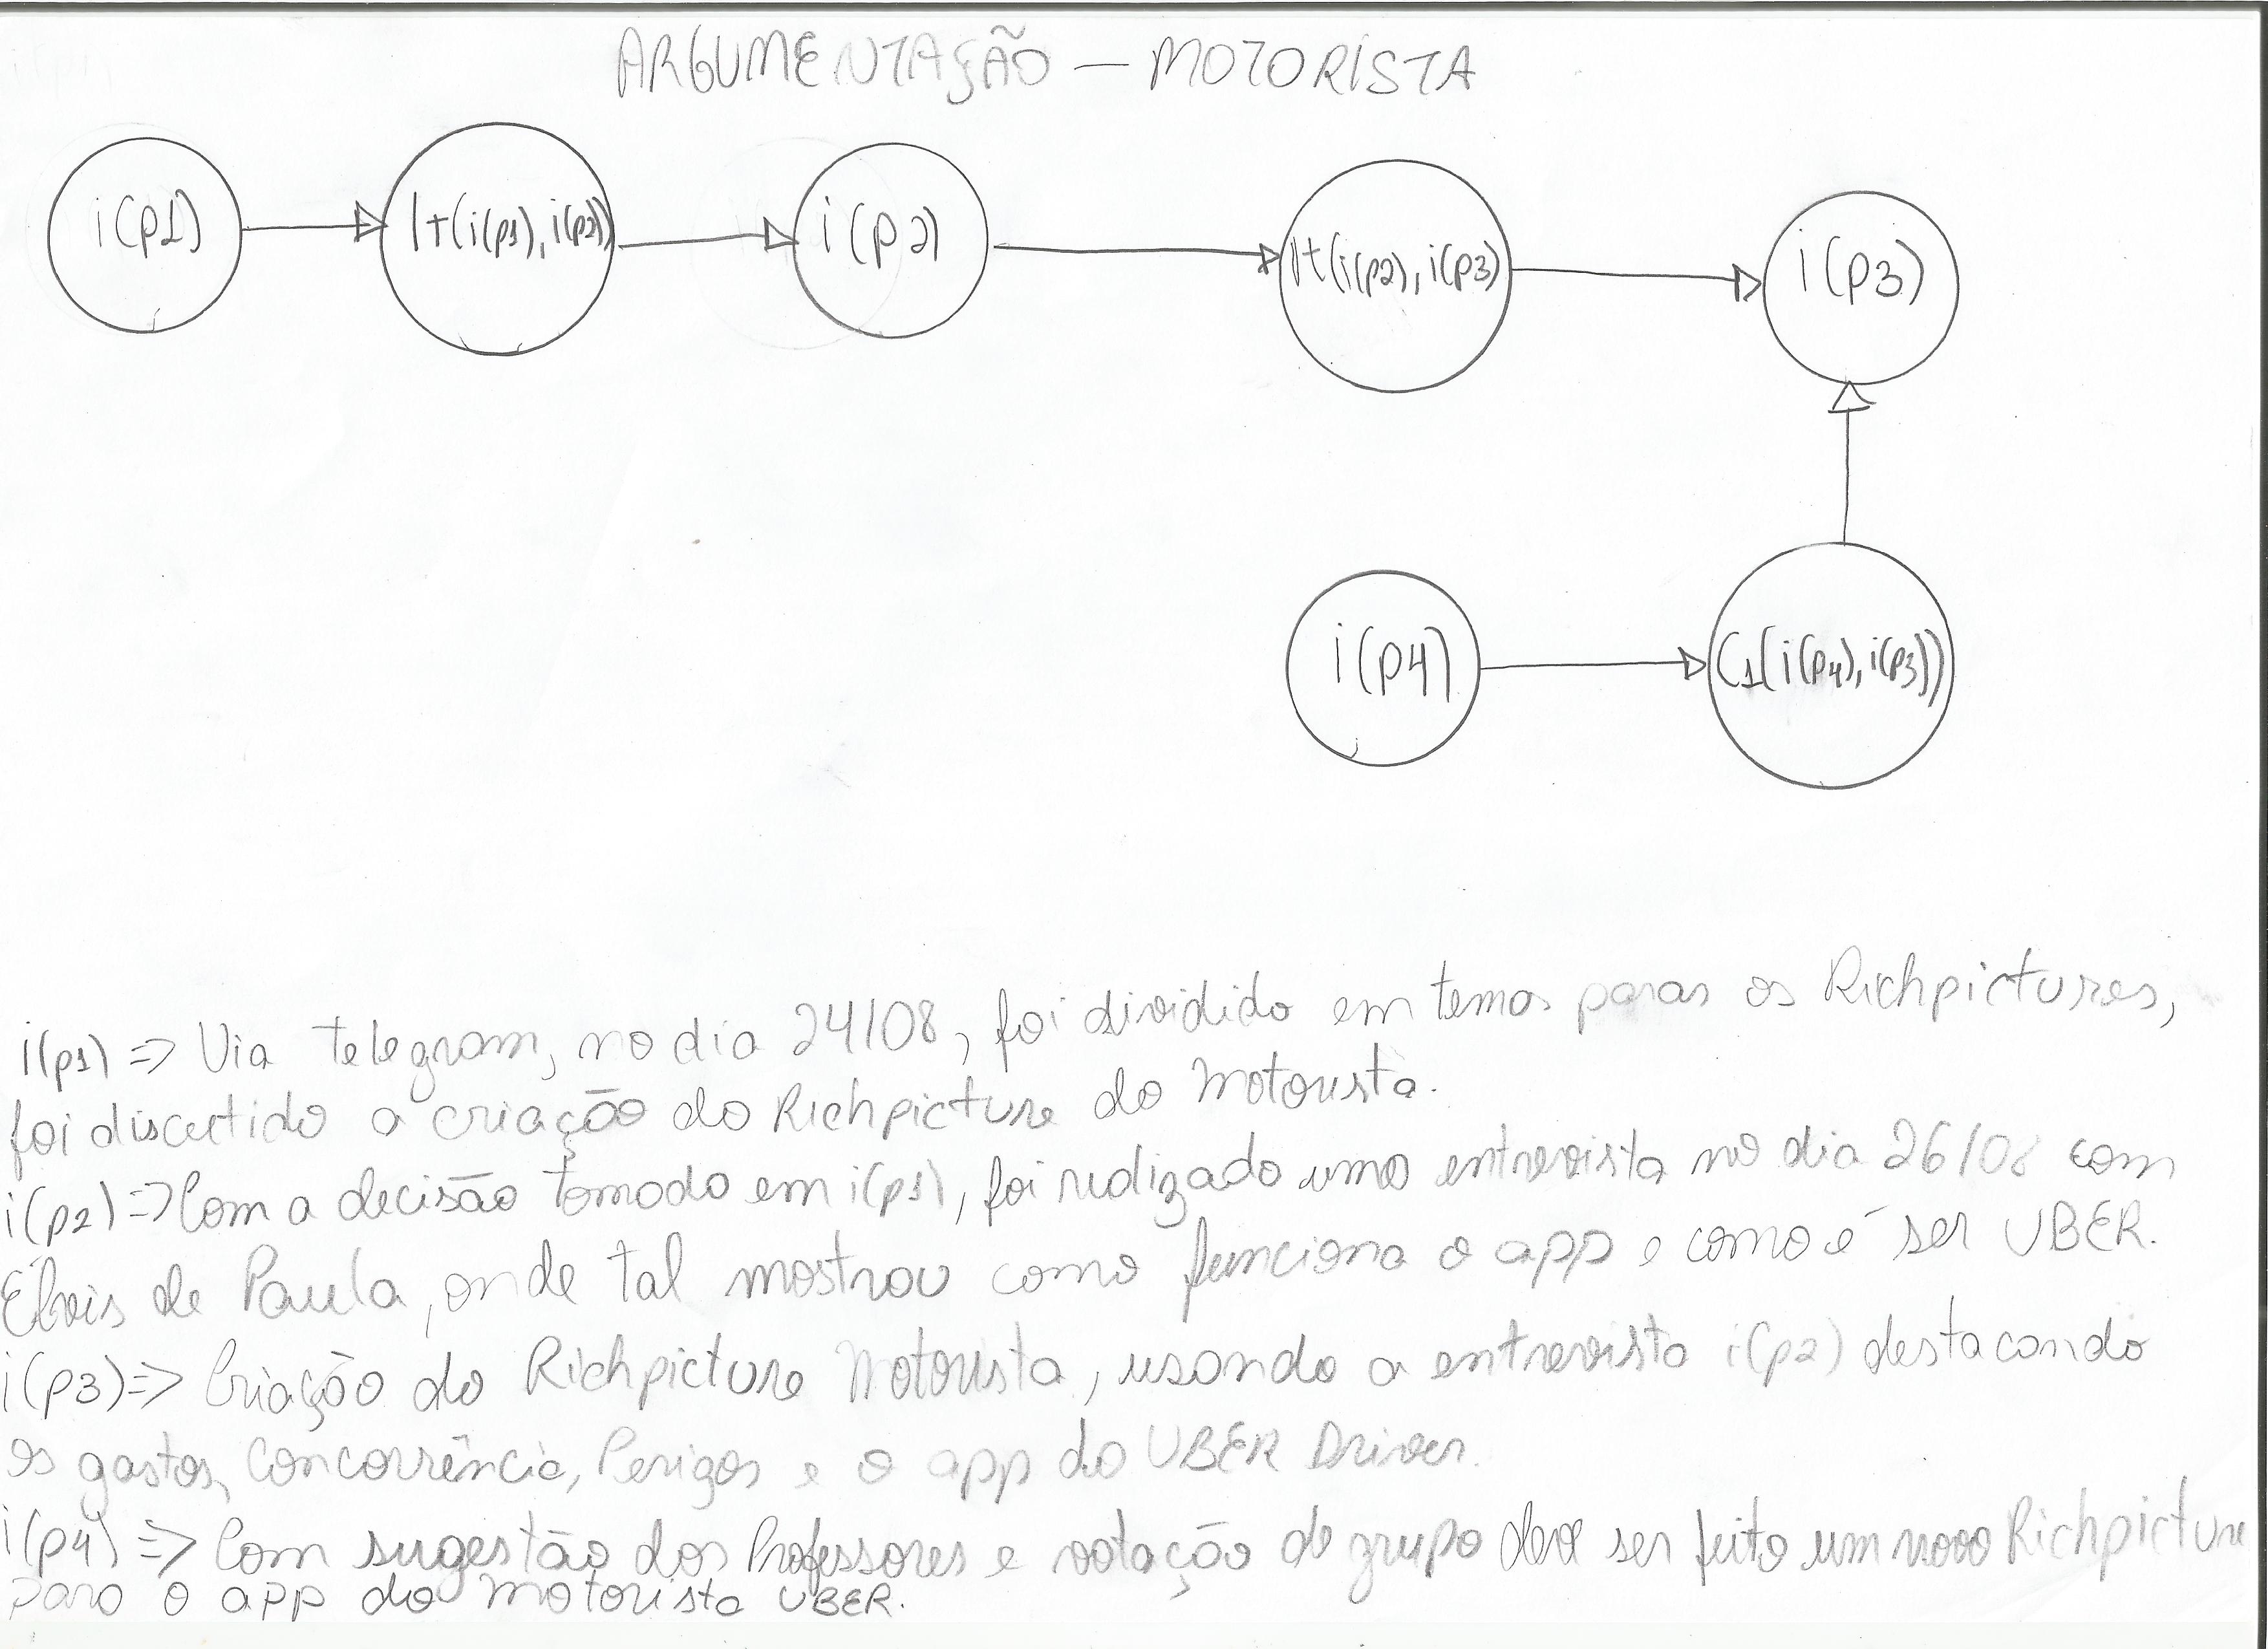 ARGUMENTAÇÃO – MOTORISTA
i(p1)
It(i(p1), i(p2))
i(p2)
It(i(p2), i(p3)
i(p3)
i(p4)
C1(i(p4), i(p3))
i(p1) => Via telegram, no dia 24/08, foi dividido em temas paras os Richpictures,
foi discutido a criação do Richpicture do Motorista.
i(p2) => Com a decisão tomado em i(p1), foi realizado uma entrevista no dia 26/08 com
Élvis de Paula, onde tal mostrou como funciona o app e como é ser UBER.
i(p3) => Criação do Richpicture Motorista, usando a entrevista i(p2) destacando
os gastos, Concorrência, Perigos e o app do UBER Driver.
i(p4) => Com sugestão dos Professores e votação do grupo deve ser feito um novo Richpicture
para o app do motorista UBER.